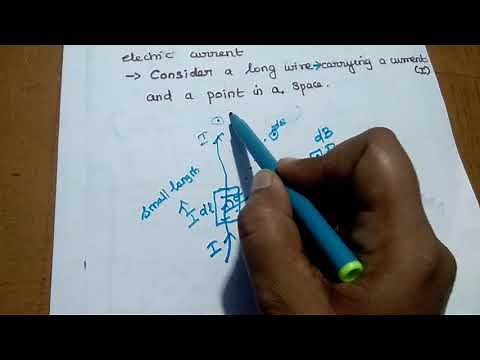 electric current
→ Consider a long wire → carrying a current
(I)
and a point in a space.
I
dB
dB
P
small length
I dl
I